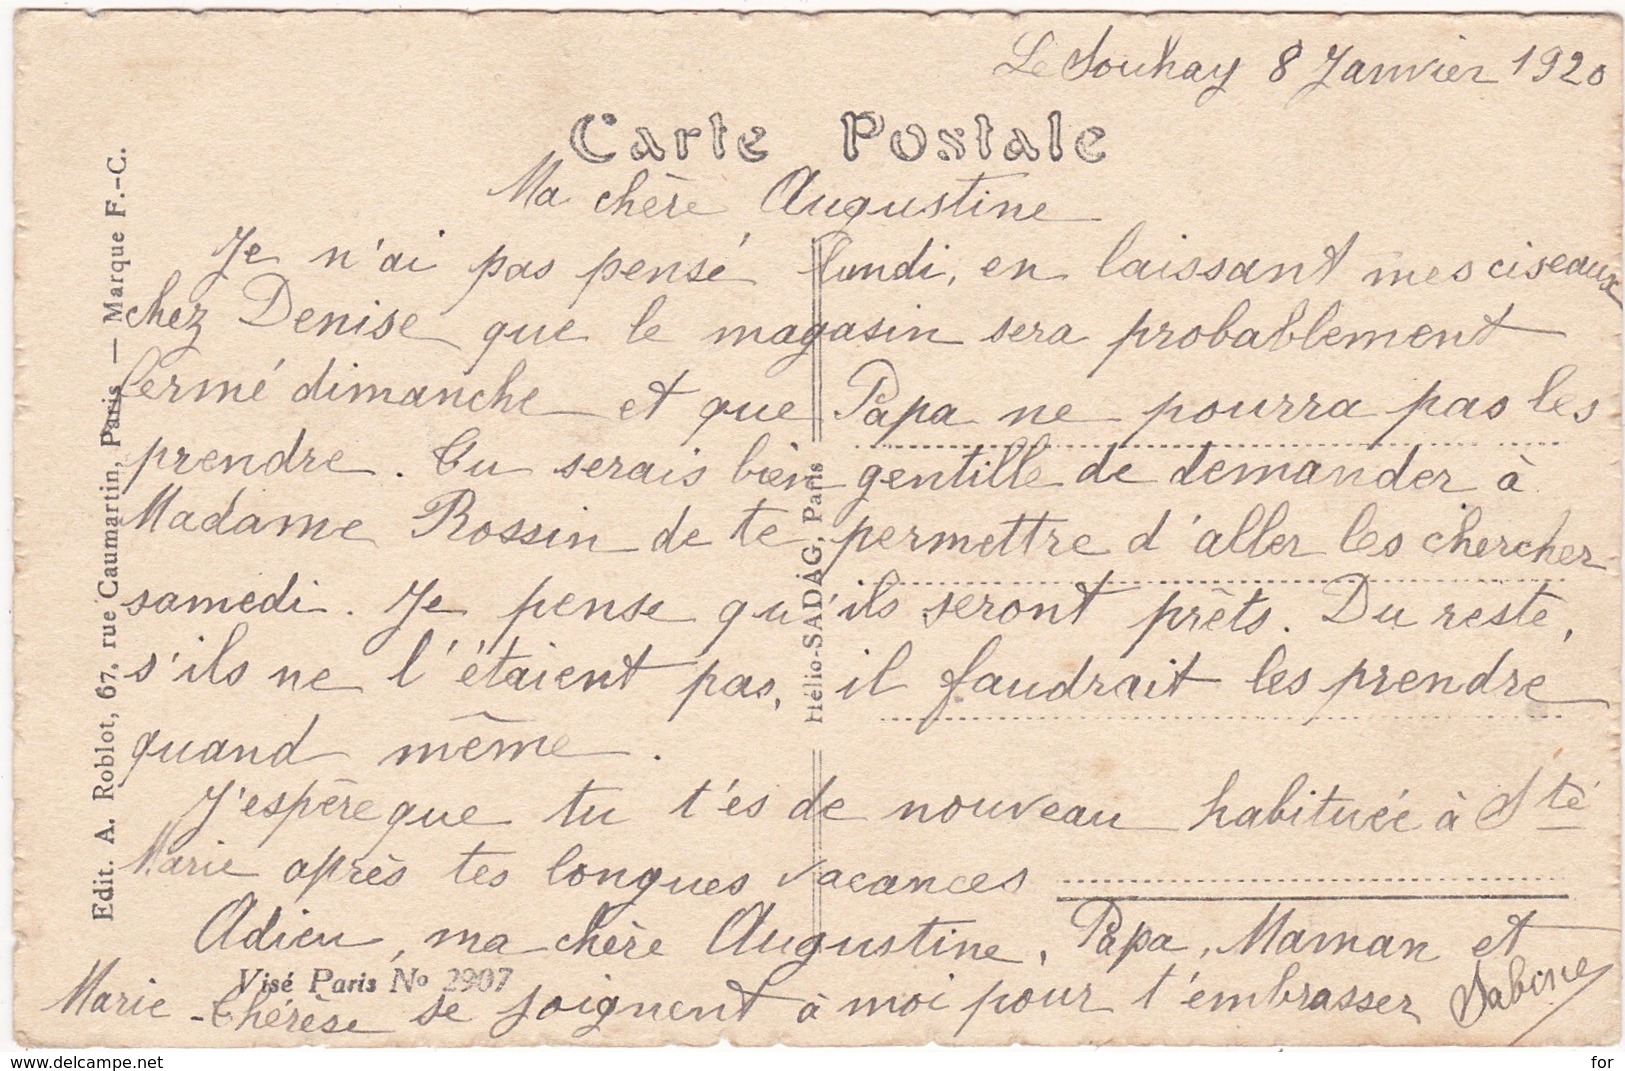 Le Souhay 8 Janvier 1920
Carte Postale
Ma chère Augustine
Je n'ai pas pensé lundi, en laissant mes ciseaux
chez Denise que le magasin sera probablement
fermé dimanche et que Papa ne pourra pas les
prendre. Tu serais bien gentille de demander à
Madame Rossin de te permettre d'aller les chercher
samedi. Je pense qu'ils seront prêts. Du reste,
s'ils ne l'étaient pas, il faudrait les prendre
quand même.
J'espère que tu t'es de nouveau habituée à Ste
Marie après tes longues vacances
Adieu, ma chère Augustine, Papa, Maman et
Marie-Thérèse se joignent à moi pour t'embrasser Sabine
Visé Paris No 2907
Edit. A. Roblot, 67, rue Caumartin, Paris — Marque F.-C.
Hélio-SADAG, Paris
delcampe.net
for